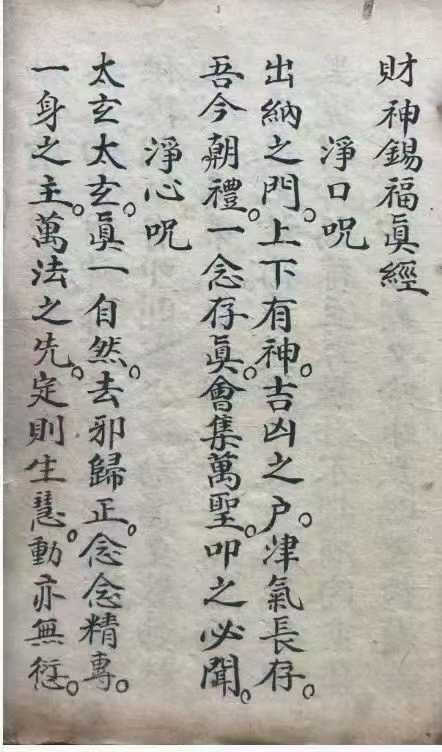 財神錫福眞經
淨口呪
出納之門。上下有神。吉凶之户。津氣長存。
吾今朝禮。一念存眞。會集萬聖。叩之必聞。
淨心呪
太玄太玄。眞一自然。去邪歸正。念念精專。
一身之主。萬法之先。定則生慧。動亦無愆。